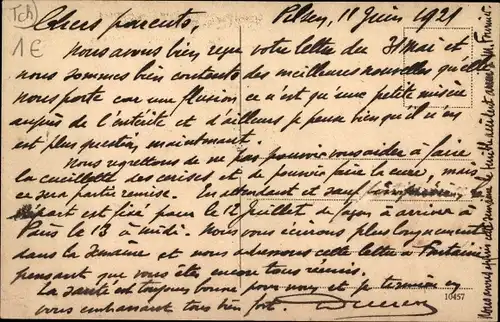 Tch
1€
Pilsen, 11 Juin 1921
Chers parents,
Nous avons bien reçu votre lettre du 31 Mai et
nous sommes bien contents des meilleures nouvelles qu'elle
nous porte car une fluxion ce n'est qu'une petite misère
auprès de l'entérite et d'ailleurs je pense bien qu'il n'en
est plus question maintenant.
Nous regrettons de ne pas pouvoir vous aider à faire
la cueillette des cerises et de pouvoir faire la cure, mais
ce sera partie remise. En attendant et sauf
départ est fixé pour le 12 Juillet de façon à arriver à
Paris le 13 à midi. Nous vous écrirons plus longuement
dans la semaine et nous adressons cette lettre à Fontaine
pensant que vous êtes encore tous réunis.
La santé est toujours bonne pour nous et je termine en
vous embrassant tous bien fort.
10457
Nous avons reçu